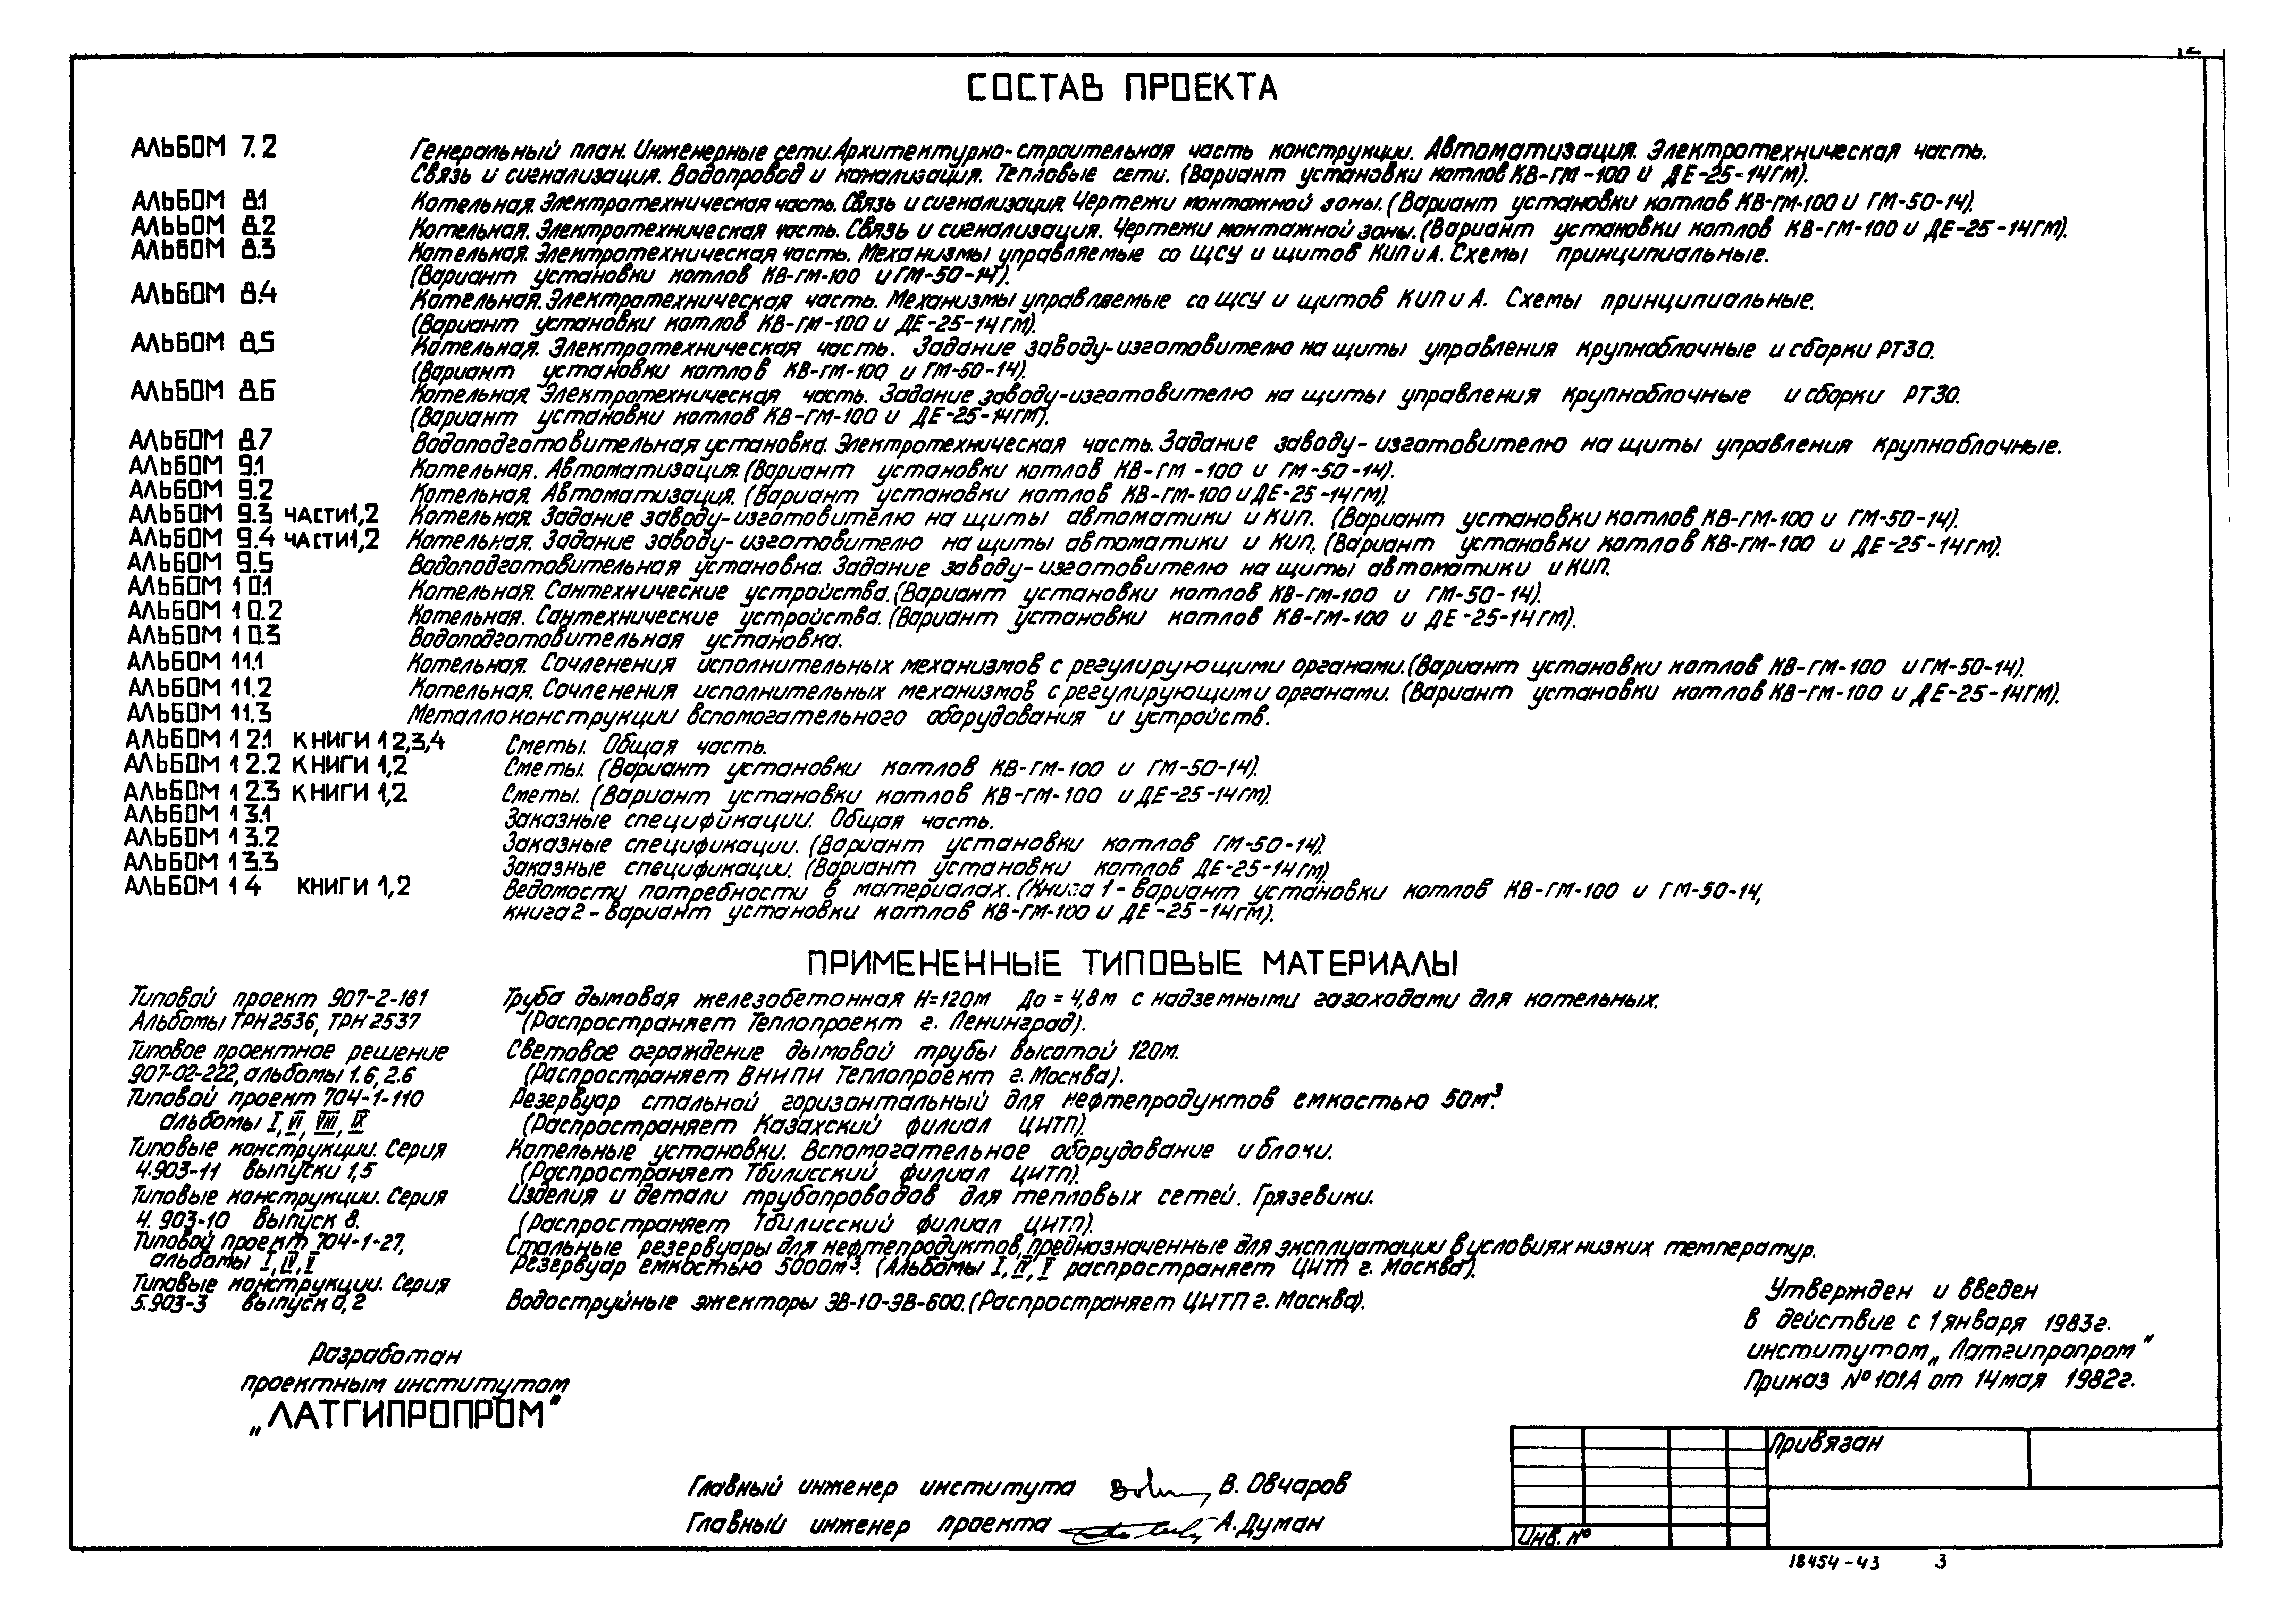 СОСТАВ ПРОЕКТА
АЛЬБОМ 7.2 Генеральный план. Инженерные сети. Архитектурно-строительная часть конструкции. Автоматизация. Электротехническая часть.
Связь и сигнализация. Водопровод и канализация. Тепловые сети. (Вариант установки котлов КВ-ГМ-100 и ДЕ-25-14ГМ).
АЛЬБОМ 8.1 Котельная. Электротехническая часть. Связь и сигнализация. Чертежи монтажной зоны. (Вариант установки котлов КВ-ГМ-100 и ГМ-50-14).
АЛЬБОМ 8.2 Котельная. Электротехническая часть. Связь и сигнализация. Чертежи монтажной зоны. (Вариант установки котлов КВ-ГМ-100 и ДЕ-25-14ГМ).
АЛЬБОМ 8.3 Котельная. Электротехническая часть. Механизмы управляемые со ЩСУ и щитов КИП и А. Схемы принципиальные.
(Вариант установки котлов КВ-ГМ-100 и ГМ-50-14).
АЛЬБОМ 8.4 Котельная. Электротехническая часть. Механизмы управляемые со ЩСУ и щитов КИП и А. Схемы принципиальные.
(Вариант установки котлов КВ-ГМ-100 и ДЕ-25-14ГМ).
АЛЬБОМ 8.5 Котельная. Электротехническая часть. Задание заводу-изготовителю на щиты управления крупноблочные и сборки РТЗО.
(Вариант установки котлов КВ-ГМ-100 и ГМ-50-14).
АЛЬБОМ 8.6 Котельная. Электротехническая часть. Задание заводу-изготовителю на щиты управления крупноблочные и сборки РТЗО.
(Вариант установки котлов КВ-ГМ-100 и ДЕ-25-14ГМ).
АЛЬБОМ 8.7 Водоподготовительная установка. Электротехническая часть. Задание заводу-изготовителю на щиты управления крупноблочные.
АЛЬБОМ 9.1 Котельная. Автоматизация. (Вариант установки котлов КВ-ГМ-100 и ГМ-50-14).
АЛЬБОМ 9.2 Котельная. Автоматизация. (Вариант установки котлов КВ-ГМ-100 и ДЕ-25-14ГМ)
АЛЬБОМ 9.3 ЧАСТИ 1,2 Котельная. Задание заводу-изготовителю на щиты автоматики и КИП. (Вариант установки котлов КВ-ГМ-100 и ГМ-50-14).
АЛЬБОМ 9.4 ЧАСТИ 1,2 Котельная. Задание заводу-изготовителю на щиты автоматики и КИП. (Вариант установки котлов КВ-ГМ-100 и ДЕ-25-14ГМ).
АЛЬБОМ 9.5 Водоподготовительная установка. Задание заводу-изготовителю на щиты автоматики и КИП.
АЛЬБОМ 10.1 Котельная. Сантехнические устройства. (Вариант установки котлов КВ-ГМ-100 и ГМ-50-14).
АЛЬБОМ 10.2 Котельная. Сантехнические устройства. (Вариант установки котлов КВ-ГМ-100 и ДЕ-25-14ГМ).
АЛЬБОМ 10.3 Водоподготовительная установка.
АЛЬБОМ 11.1 Котельная. Сочленения исполнительных механизмов с регулирующими органами. (Вариант установки котлов КВ-ГМ-100 и ГМ-50-14).
АЛЬБОМ 11.2 Котельная. Сочленения исполнительных механизмов с регулирующими органами. (Вариант установки котлов КВ-ГМ-100 и ДЕ-25-14ГМ).
АЛЬБОМ 11.3 Металлоконструкции вспомогательного оборудования и устройств.
АЛЬБОМ 12.1 КНИГИ 1 2,3,4 Сметы. Общая часть.
АЛЬБОМ 12.2 КНИГИ 1,2 Сметы. (Вариант установки котлов КВ-ГМ-100 и ГМ-50-14).
АЛЬБОМ 12.3 КНИГИ 1,2 Сметы. (Вариант установки котлов КВ-ГМ-100 и ДЕ-25-14ГМ).
АЛЬБОМ 13.1 Заказные спецификации. Общая часть.
АЛЬБОМ 13.2 Заказные спецификации. (Вариант установки котлов ГМ-50-14).
АЛЬБОМ 13.3 Заказные спецификации. (Вариант установки котлов ДЕ-25-14ГМ)
АЛЬБОМ 14 КНИГИ 1,2 Ведомости потребности в материалах. (Книга 1 - вариант установки котлов КВ-ГМ-100 и ГМ-50-14,
книга 2 - вариант установки котлов КВ-ГМ-100 и ДЕ-25-14ГМ).
ПРИМЕНЕННЫЕ ТИПОВЫЕ МАТЕРИАЛЫ
Типовой проект 907-2-181 Труба дымовая железобетонная Н=120м До = 4,8м с надземными газоходами для котельных.
Альбомы ТРН2536, ТРН2537 (Распространяет Теплопроект г. Ленинград).
Типовое проектное решение Световое ограждение дымовой трубы высотой 120м.
907-02-222, альбомы 1.6, 2.6 (Распространяет ВНИПИ Теплопроект г. Москва).
Типовой проект 704-1-110 Резервуар стальной горизонтальный для нефтепродуктов емкостью 50м³.
альбомы I, VI, VIII, IX (Распространяет Казахский филиал ЦИТП).
Типовые конструкции. Серия Котельные установки. Вспомогательное оборудование и блоки.
4.903-11 выпуски 1,5 (Распространяет Тбилисский филиал ЦИТП).
Типовые конструкции. Серия Изделия и детали трубопроводов для тепловых сетей. Грязевики.
4.903-10 выпуск 8. (Распространяет Тбилисский филиал ЦИТП).
Типовой проект 704-1-27, Стальные резервуары для нефтепродуктов, предназначенные для эксплуатации в условиях низких температур.
альбомы I, IV, V Резервуар емкостью 5000м³. (Альбомы I, IV, V распространяет ЦИТП г. Москва).
Типовые конструкции. Серия
5.903-3 выпуск 0,2 Водоструйные эжекторы ЭВ-10-ЭВ-600. (Распространяет ЦИТП г. Москва).
Утвержден и введен
в действие с 1 января 1983г.
институтом „Латгипропром”
Приказ № 101А от 14 мая 1982г.
Разработан
проектным институтом
„ЛАТГИПРОПРОМ”
Главный инженер института В. Овчаров
Главный инженер проекта А. Думан
Привязан
Инв. №
18454-43 3